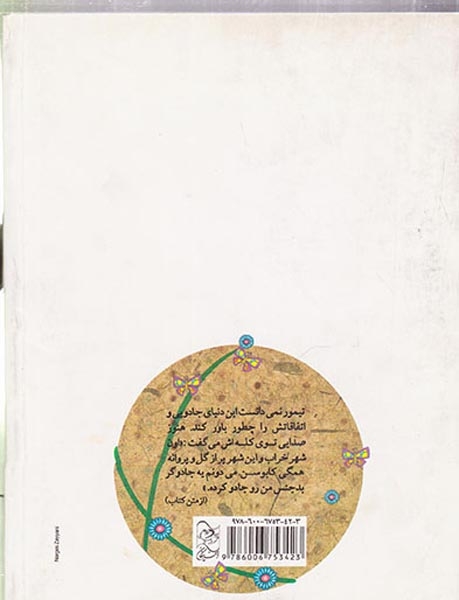 تیمور نمی دانست این دنیای جادویی و
اتفاقاتش را چطور باور کند. هنوز
صدایی توی کله اش می گفت: «اون
شهر خراب و این شهر پر از گل و پروانه
همگی کابوسن. می دونم یه جادوگر
بدجنس من رو جادو کرده.»
(از متن کتاب)
۹۷۸-۶۰۰-۶۷۵۳-۴۲-۳
9786006753423
Narges Zayyani